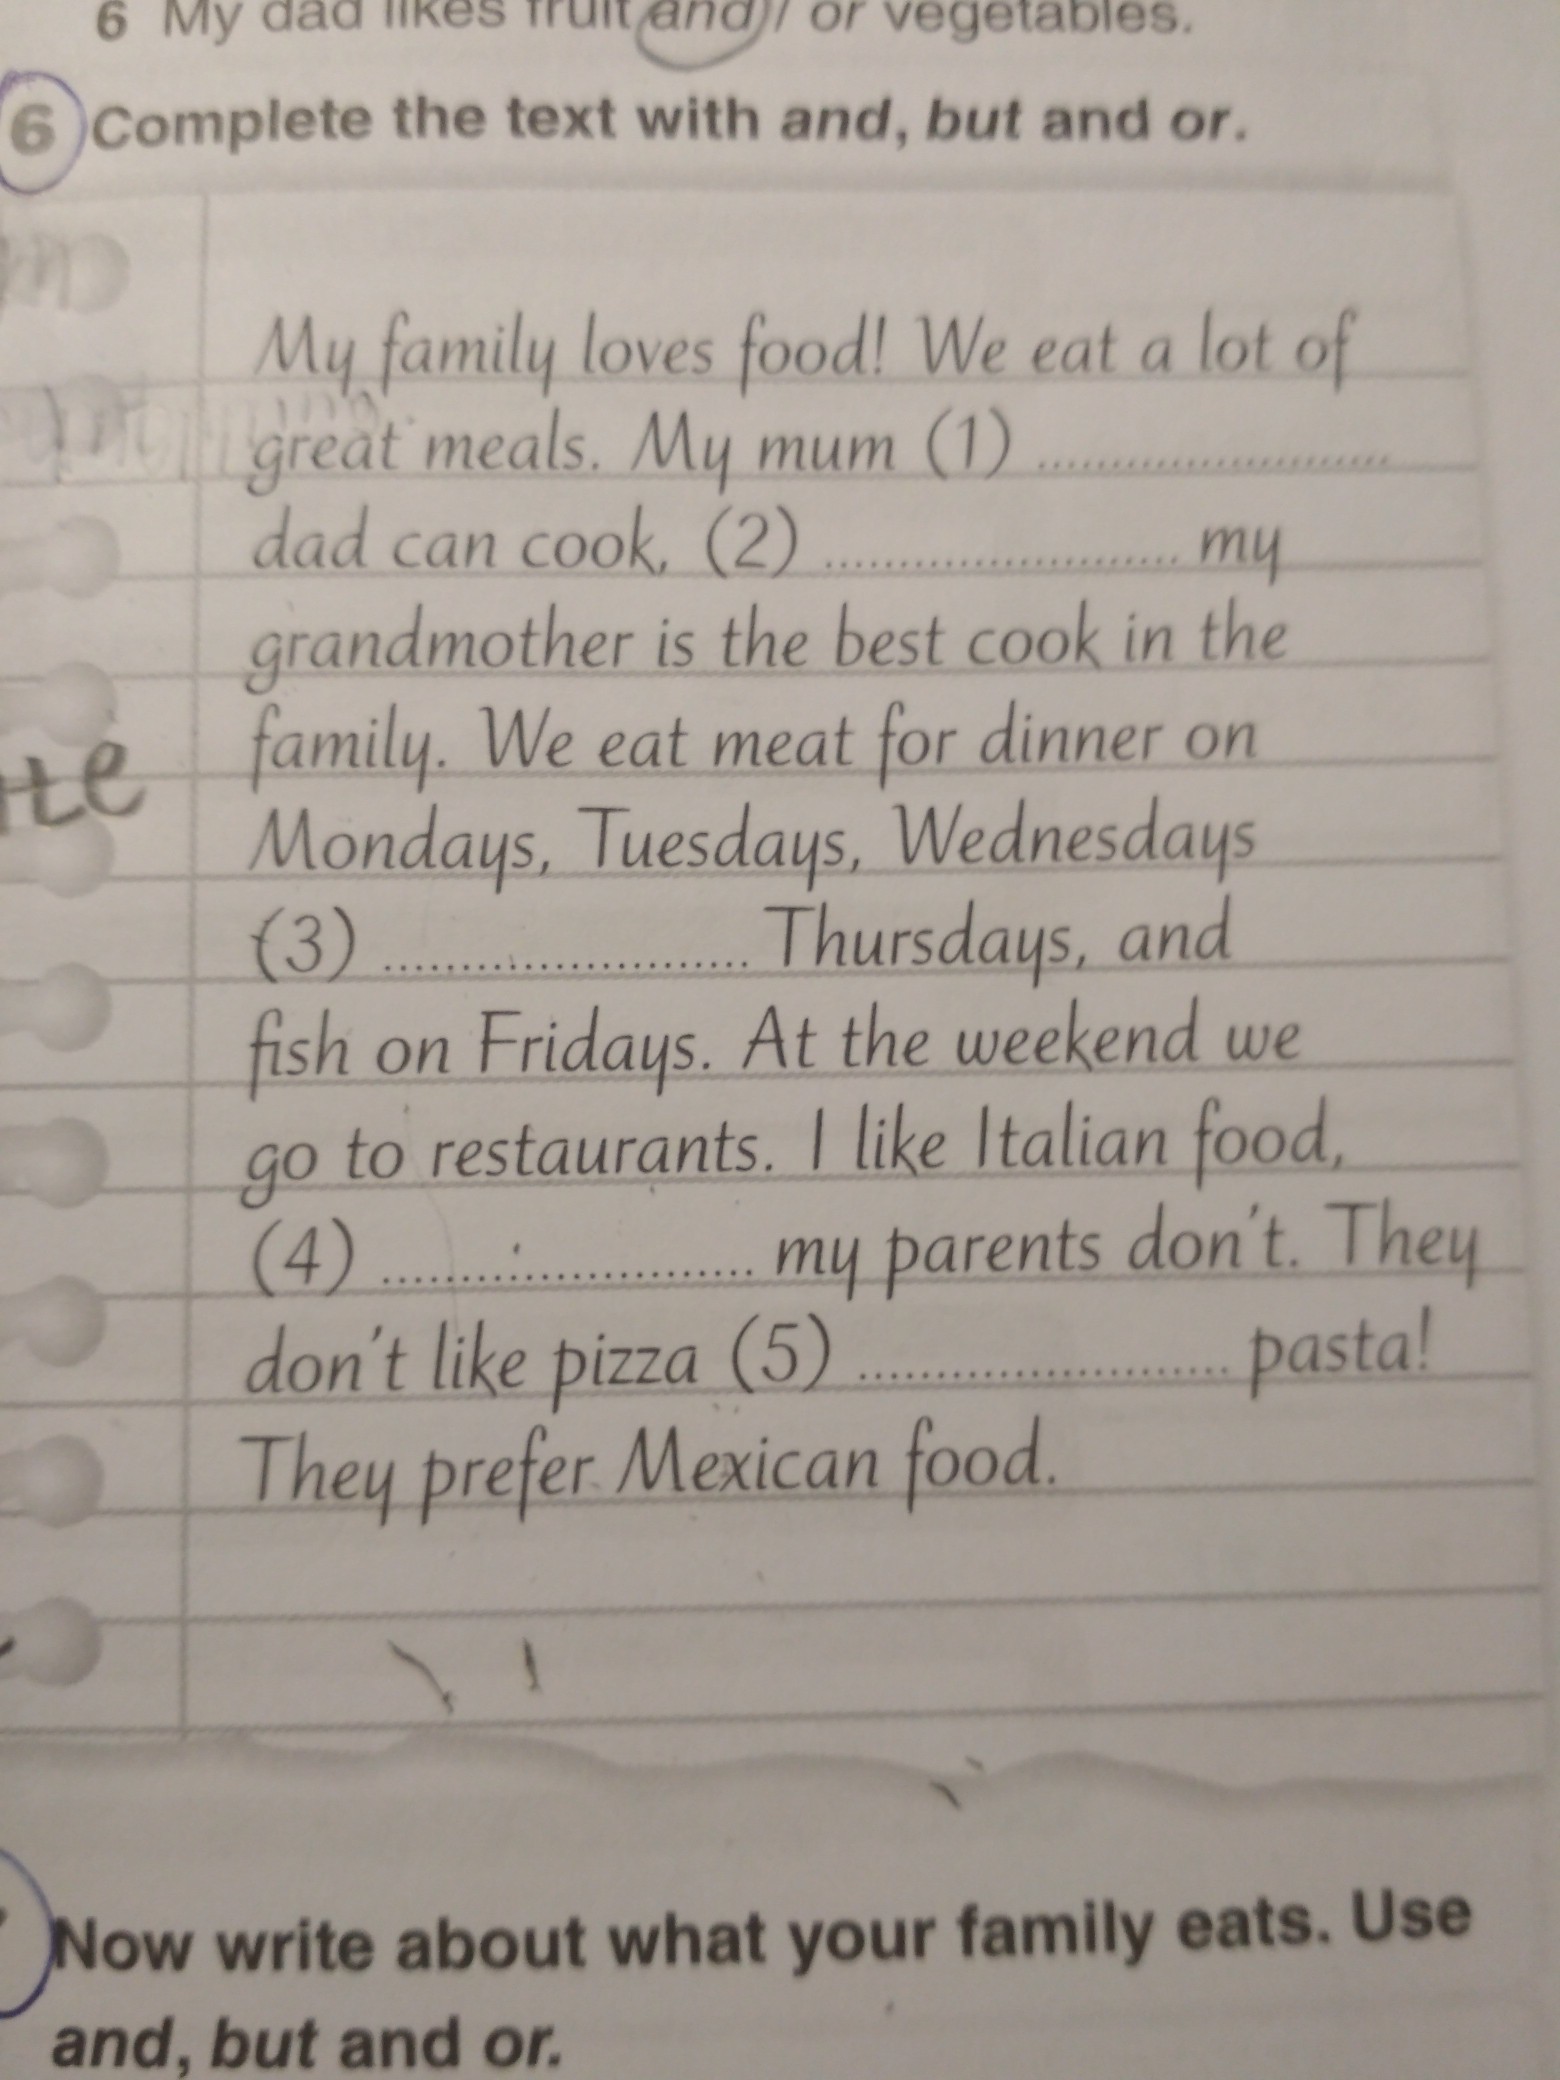 6 My dad likes fruit and / or vegetables.
6 Complete the text with and, but and or.
My family loves food! We eat a lot of
great meals. My mum (1) ........................
dad can cook, (2) ........................ my
grandmother is the best cook in the
family. We eat meat for dinner on
Mondays, Tuesdays, Wednesdays
(3) ........................ Thursdays, and
fish on Fridays. At the weekend we
go to restaurants. I like Italian food,
(4) ........................ my parents don't. They
don't like pizza (5) ........................ pasta!
They prefer Mexican food.
Now write about what your family eats. Use
and, but and or.